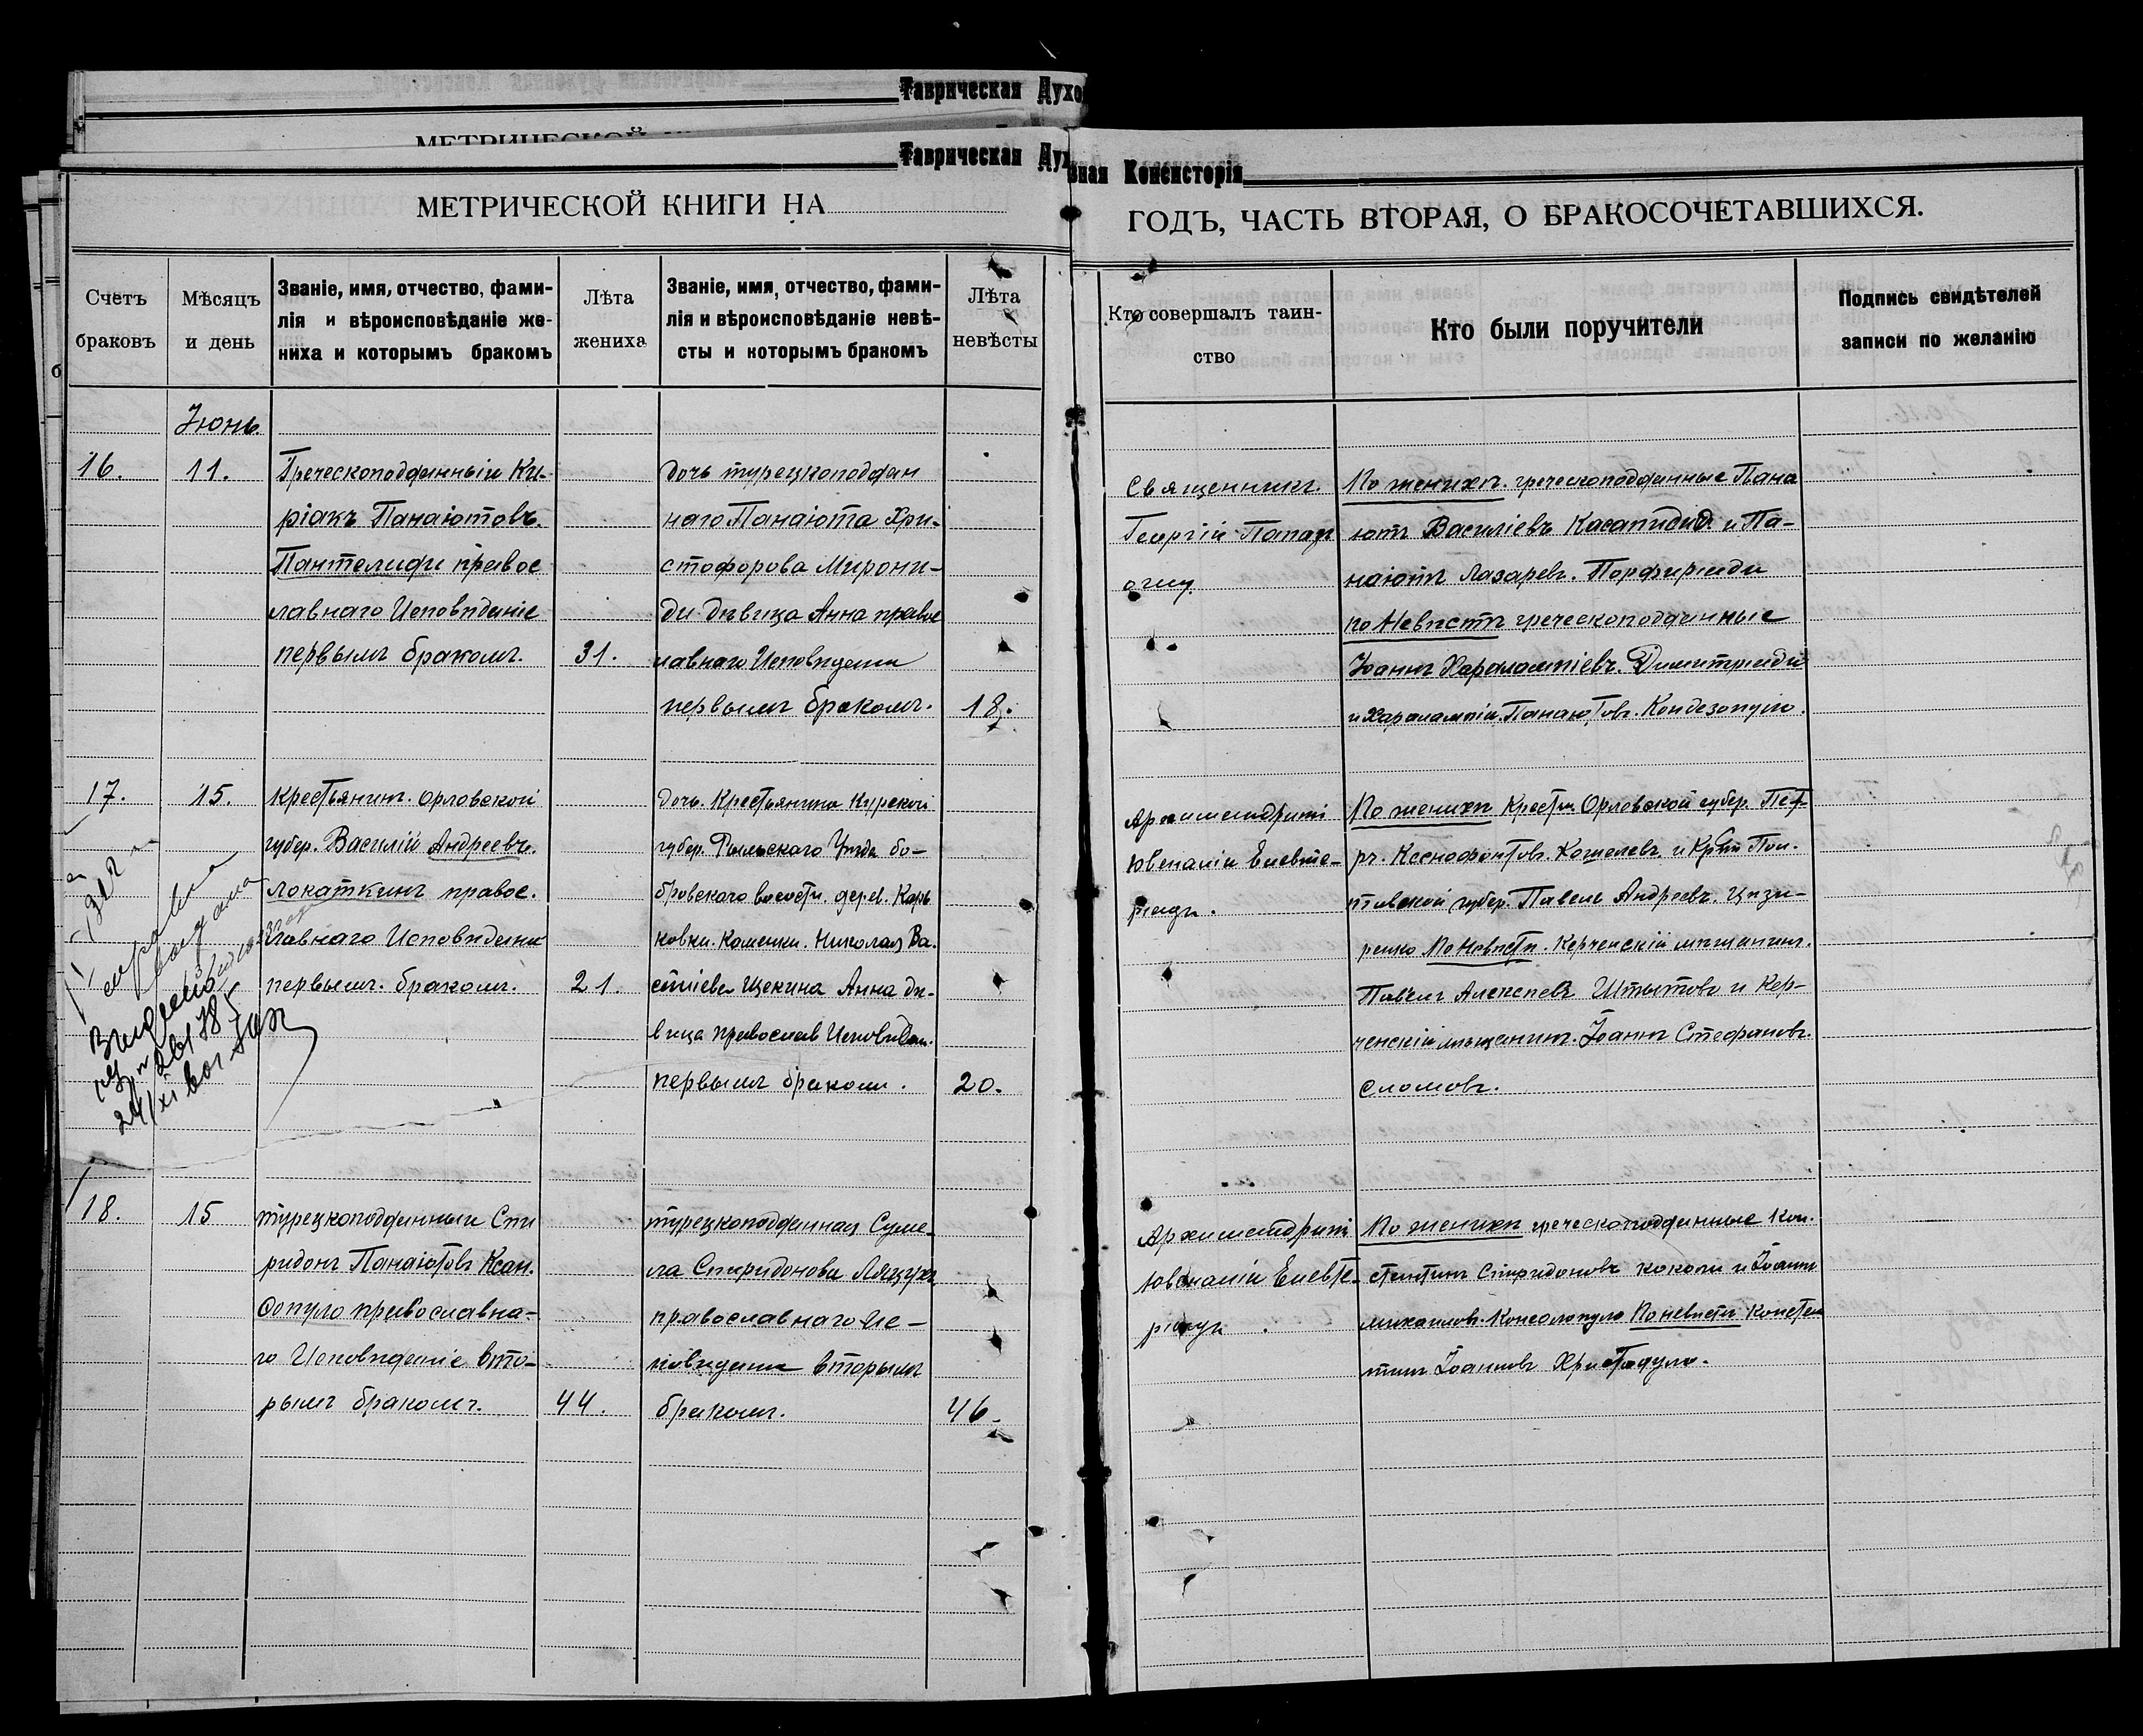 Таврическая Духо
МЕТРИЧЕСКОЙ
Таврическая Дух
вная Консисторія
МЕТРИЧЕСКОЙ КНИГИ НА
ГОДЪ, ЧАСТЬ ВТОРАЯ, О БРАКОСОЧЕТАВШИХСЯ.
Счетъ
браковъ
Мѣсяцъ
и день
Званіе, имя, отчество, фами-
лія и вѣроисповѣданіе же-
ниха и которымъ бракомъ
Лѣта
жениха
Званіе, имя, отчество, фами-
лія и вѣроисповѣданіе невѣ-
сты и которымъ бракомъ
Лѣта
невѣсты
Кто совершалъ таин-
ство
Кто были поручители
Подпись свидѣтелей
записи по желанію
Іюнь
16.
11.
Греческоподданный Ки-
ріакъ Панаіотовъ.
Пантелиди правос
лавнаго Исповѣданіе
первымъ бракомъ.
31.
дочь турецкоподдан
наго Панаіота Хри-
стофорова Мирони-
ди дѣвица Анна правос
лавнаго Исповѣдани
первымъ бракомъ.
18.
Священникъ
Георгій
По женихѣ. греческоподданные Пана
іотъ Василіевъ Касапиди и Па-
наіотъ Лазаревъ. Порфириди
по Невѣстѣ греческоподданные
Іоаннъ Харалампіевъ. Димитриди
и Харалампій Панаіотовъ. Кондезопуло.
17.
15.
Крестьянинъ. Орловской
губер. Василій Андреевъ.
Локаткинъ правос.
лавнаго Исповѣдани
первымъ. бракомъ.
21.
дочь. Крестьянина Курской
губер. Рыльскаго Уѣзда бо-
бровскаго волости. дерев. Карь
ковки. Николая Ва.
силіева Щекина Анна дѣ-
вица православ Исповѣдан.
первымъ бракомъ.
20.
Архимандритъ
Ювеналій Елевте-
ріадъ.
По женихѣ Крестьн Орловской губер. Пет-
ръ. Ксенофонтовъ. Кошелевъ. и Крстн Пол.
тавской губер. Павелъ Андреевъ. Цизи-
ренко По Невѣстѣ. Керченскій мѣщанинъ.
Павелъ Алексѣевъ Штытово и Кер-
ченскій мѣщанинъ. Іоаннъ Стефановъ.
Сломовъ.
справка
выдана
24/XI
18.
15
турецкоподданный Спи
ридонъ Панаіотовъ Ксан.
допуло православна-
го Исповѣданіе вто-
рымъ бракомъ.
44.
турецкоподданная Суме-
ла Спиридонова
православнаго Ис-
повѣдани вторымъ
бракомъ.
46.
Архимандритъ
Ювеналій Елевте-
ріадъ.
По женихѣ греческоподданные Кон.
стантинъ Спиридоновъ Коколи и Іоаннъ
михаиловъ. Консолопуло По невѣстѣ Констан
тинъ Іоанновъ Христодуло.